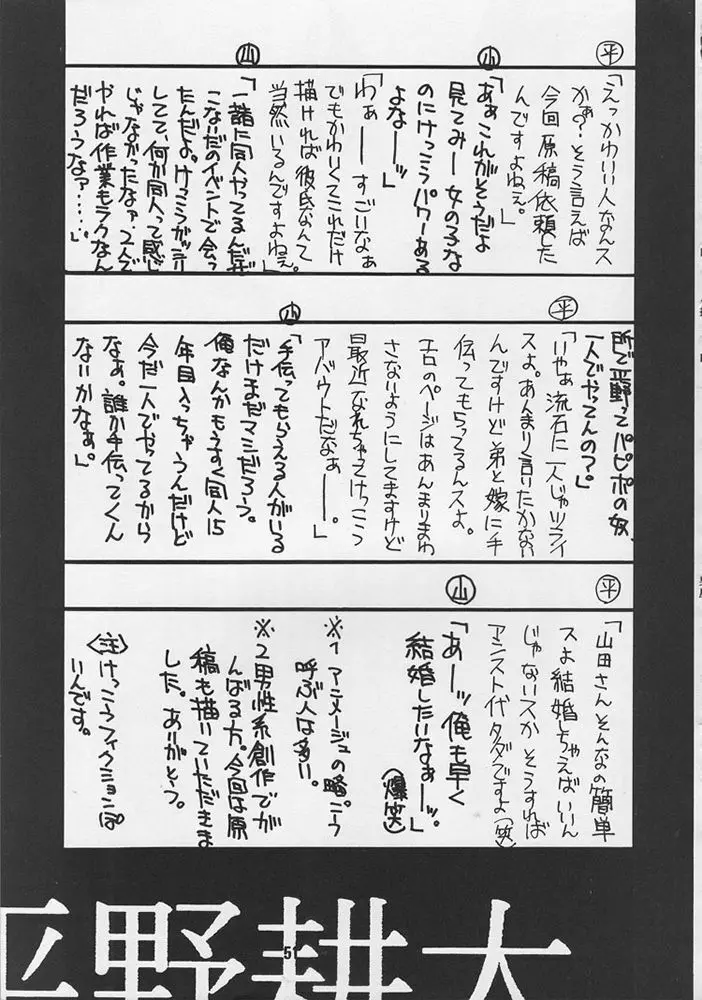 平
「えっかわいい人なんス
かぁ？そう言えば
今回原稿依頼した
んですよねぇ。」
山
「あぁこれがそうだよ
見てみー女の子な
のにけっこうパワーある
よなーッ」
「わぁーーすごいなぁ
でもかわいくてこれだけ
描ければ彼氏なんて
当然いるんですよねぇ。」
山
「一諸に同人やってるんだぜ
こないだのイベントで会っ
たんだよ。けっこうガッシリ
してて、何か同人って感じ
じゃなかったなァ。2人で
やれば作業もラクなん
だろうなァ……」
所で平野ってパピポの奴、
一人でやってんの？。」
平
「いやぁ流石に一人じゃツライ
スよ。あんまり言いたかない
んですけど弟と嫁に手
伝ってもらってるんスよ。
エロのページはあんまりまわ
さないようにしてますけど
最近なれちゃってけっこう
アバウトだなぁー。」
山
「手伝ってもらえる人がいる
だけまだマシだろう。
俺なんかもうすぐ同人15
年目入っちゃうんだけど
今だ一人でやってるから
なぁ。誰か手伝ってくん
ないかなぁ。」
平
「山田さんそんなの簡単
スよ結婚しちゃえばいいん
じゃないスか そうすれば
アシスト代タダですよ(笑)
山
「あーッ俺も早く
結婚したいなぁーッ。」
(爆笑)
※1 アニメージュの略。こう
呼ぶ人は多い。
※2 男性系創作でが
んばる方。今回は原
稿も描いていただきま
した。ありがとう。
〈注〉けっこうフィクションぽ
いんです。
平野耕太
51